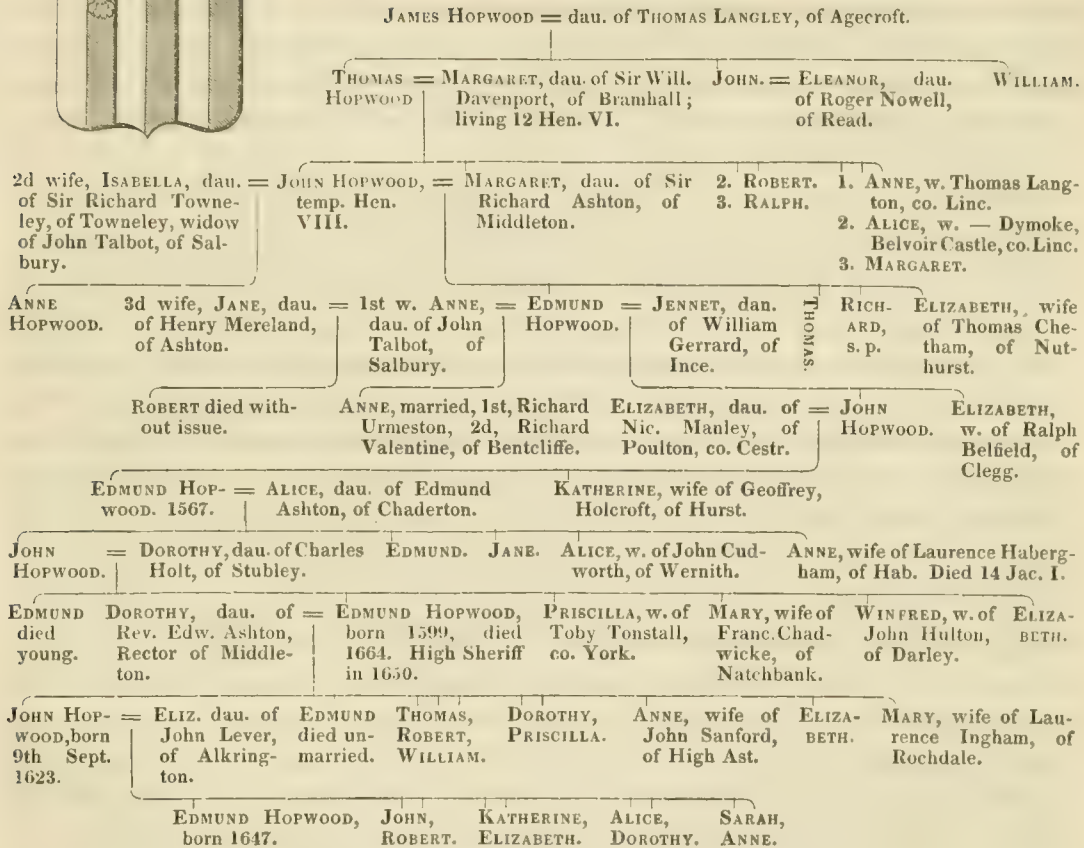 JAMES HOPWOOD = dau. of THOMAS LANGLEY, of Agecroft.
THOMAS
HOPWOOD
= MARGARET, dau. of Sir Will.
Davenport, of Bramhall;
living 12 Hen. VI.
JOHN. = ELEANOR, dau.
of Roger Nowell,
of Read.
WILLIAM.
2d wife, ISABELLA, dau.
of Sir Richard Towne-
ley, of Towneley, widow
of John Talbot, of Sal-
bury.
= JOHN HOPWOOD,
temp. Hen.
VIII.
= MARGARET, dau. of Sir
Richard Ashton, of
Middleton.
2. ROBERT.
3. RALPH.
1. ANNE, w. Thomas Lang-
ton, co. Linc.
2. ALICE, w. — Dymoke,
Belvoir Castle, co. Linc.
3. MARGARET.
ANNE
HOPWOOD.
3d wife, JANE, dau.
of Henry Mereland,
of Ashton.
= 1st w. ANNE,
dau. of John
Talbot, of
Salbury.
= EDMUND
HOPWOOD.
= JENNET, dan.
of William
Gerrard, of
Ince.
THOMAS.
RICH-
ARD,
s. p.
ELIZABETH, wife
of Thomas Che-
tham, of Nut-
hurst.
ROBERT died with-
out issue.
ANNE, married, 1st, Richard
Urmeston, 2d, Richard
Valentine, of Bentcliffe.
ELIZABETH, dau. of
Nic. Manley, of
Poulton, co. Cestr.
= JOHN
HOPWOOD.
ELIZABETH,
w. of Ralph
Belfield, of
Clegg.
EDMUND HOP-
WOOD. 1567.
= ALICE, dau. of Edmund
Ashton, of Chaderton.
KATHERINE, wife of Geoffrey,
Holcroft, of Hurst.
JOHN
HOPWOOD.
= DOROTHY, dau. of Charles
Holt, of Stubley.
EDMUND.
JANE.
ALICE, w. of John Cud-
worth, of Wernith.
ANNE, wife of Laurence Haberg-
ham, of Hab. Died 14 Jac. I.
EDMUND
died
young.
DOROTHY, dau. of
Rev. Edw. Ashton,
Rector of Middle-
ton.
= EDMUND HOPWOOD,
born 1599, died
1664. High Sheriff
in 1650.
PRISCILLA, w. of
Toby Tonstall,
co. York.
MARY, wife of
Franc. Chad-
wicke, of
Natchbank.
WINFRED, w. of
John Hulton,
of Darley.
ELIZA-
BETH.
JOHN HOP-
WOOD, born
9th Sept.
1623.
= ELIZ. dau. of
John Lever,
of Alkring-
ton.
EDMUND
died un-
married.
THOMAS,
ROBERT,
WILLIAM.
DOROTHY,
PRISCILLA.
ANNE, wife of
John Sanford,
of High Ast.
ELIZA-
BETH.
MARY, wife of Lau-
rence Ingham, of
Rochdale.
EDMUND HOPWOOD,
born 1647.
JOHN,
ROBERT.
KATHERINE,
ELIZABETH.
ALICE,
DOROTHY.
SARAH,
ANNE.